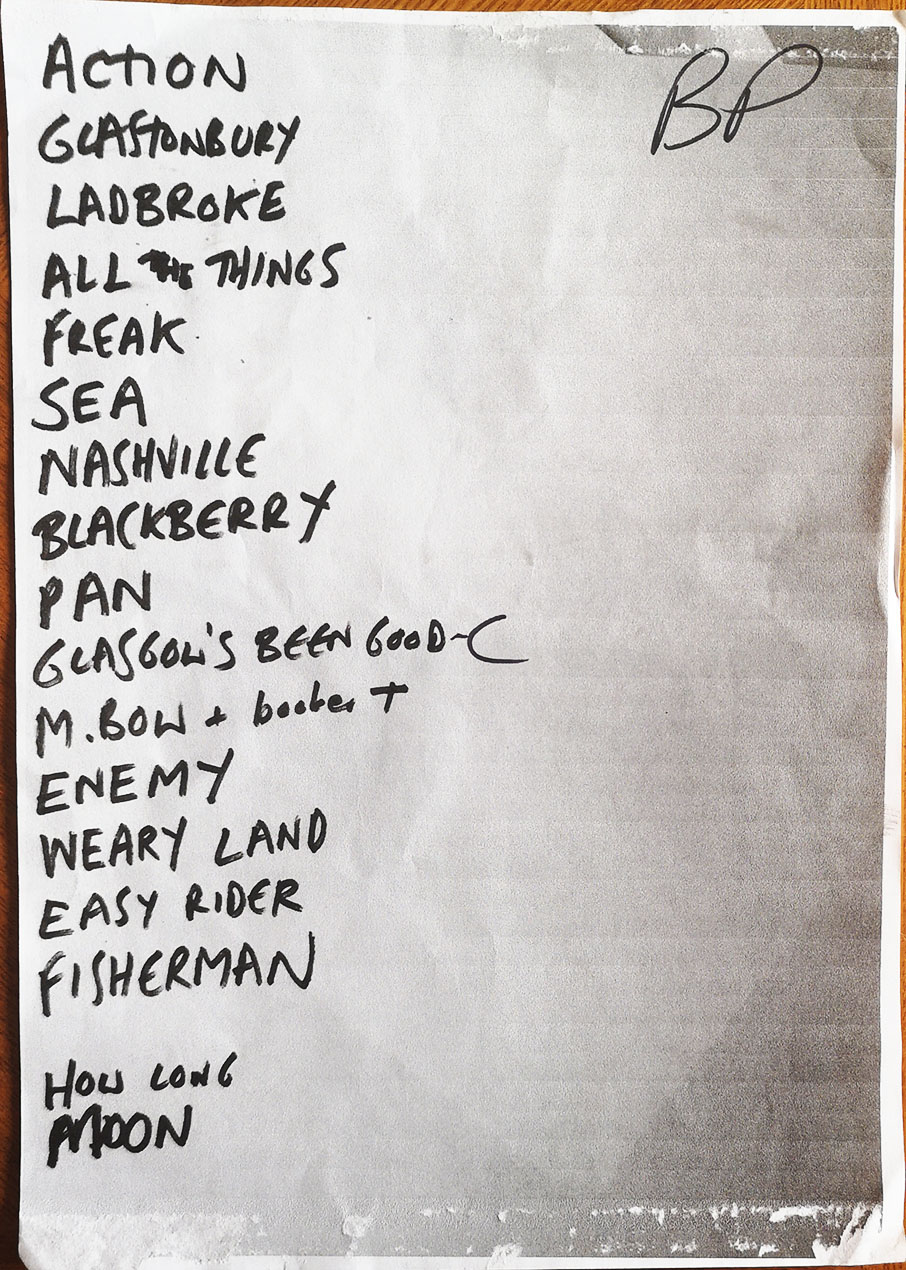 ACTION
BP
GLASTONBURY
LADBROKE
ALL THE THINGS
FREAK
SEA
NASHVILLE
BLACKBERRY
PAN
GLASGOW'S BEEN GOOD-C
M.BOW + booker T
ENEMY
WEARY LAND
EASY RIDER
FISHERMAN
HOW LONG
MOON